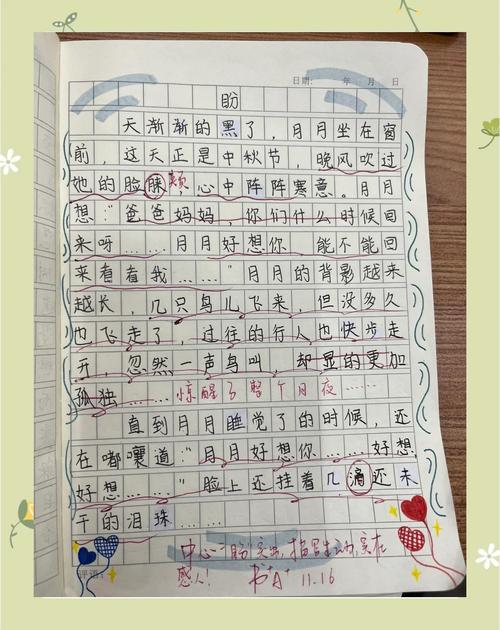 日期: 年 月 日
盼
天渐渐的黑了，月月坐在窗
前，这天正是中秋节，晚风吹过
她的脸颊，心中阵阵寒意。月月
想："爸爸妈妈，你们什么时候回
来呀……月月好想你 能不能回
来看看我……"月月的背影越来
越长，几只鸟儿飞来，但没多久
也飞走了，过往的行人也快步走
开，忽然一声鸟叫，却显的更加
孤独……惊醒了整个月夜……
直到月月睡觉了的时候，还
在嘟囔道："月月好想你……好想
好想……"脸上还挂着几滴还未
干的泪珠……
中心"盼"突出，描写生动，实在
感人！ 书A+ 11.16
评语: